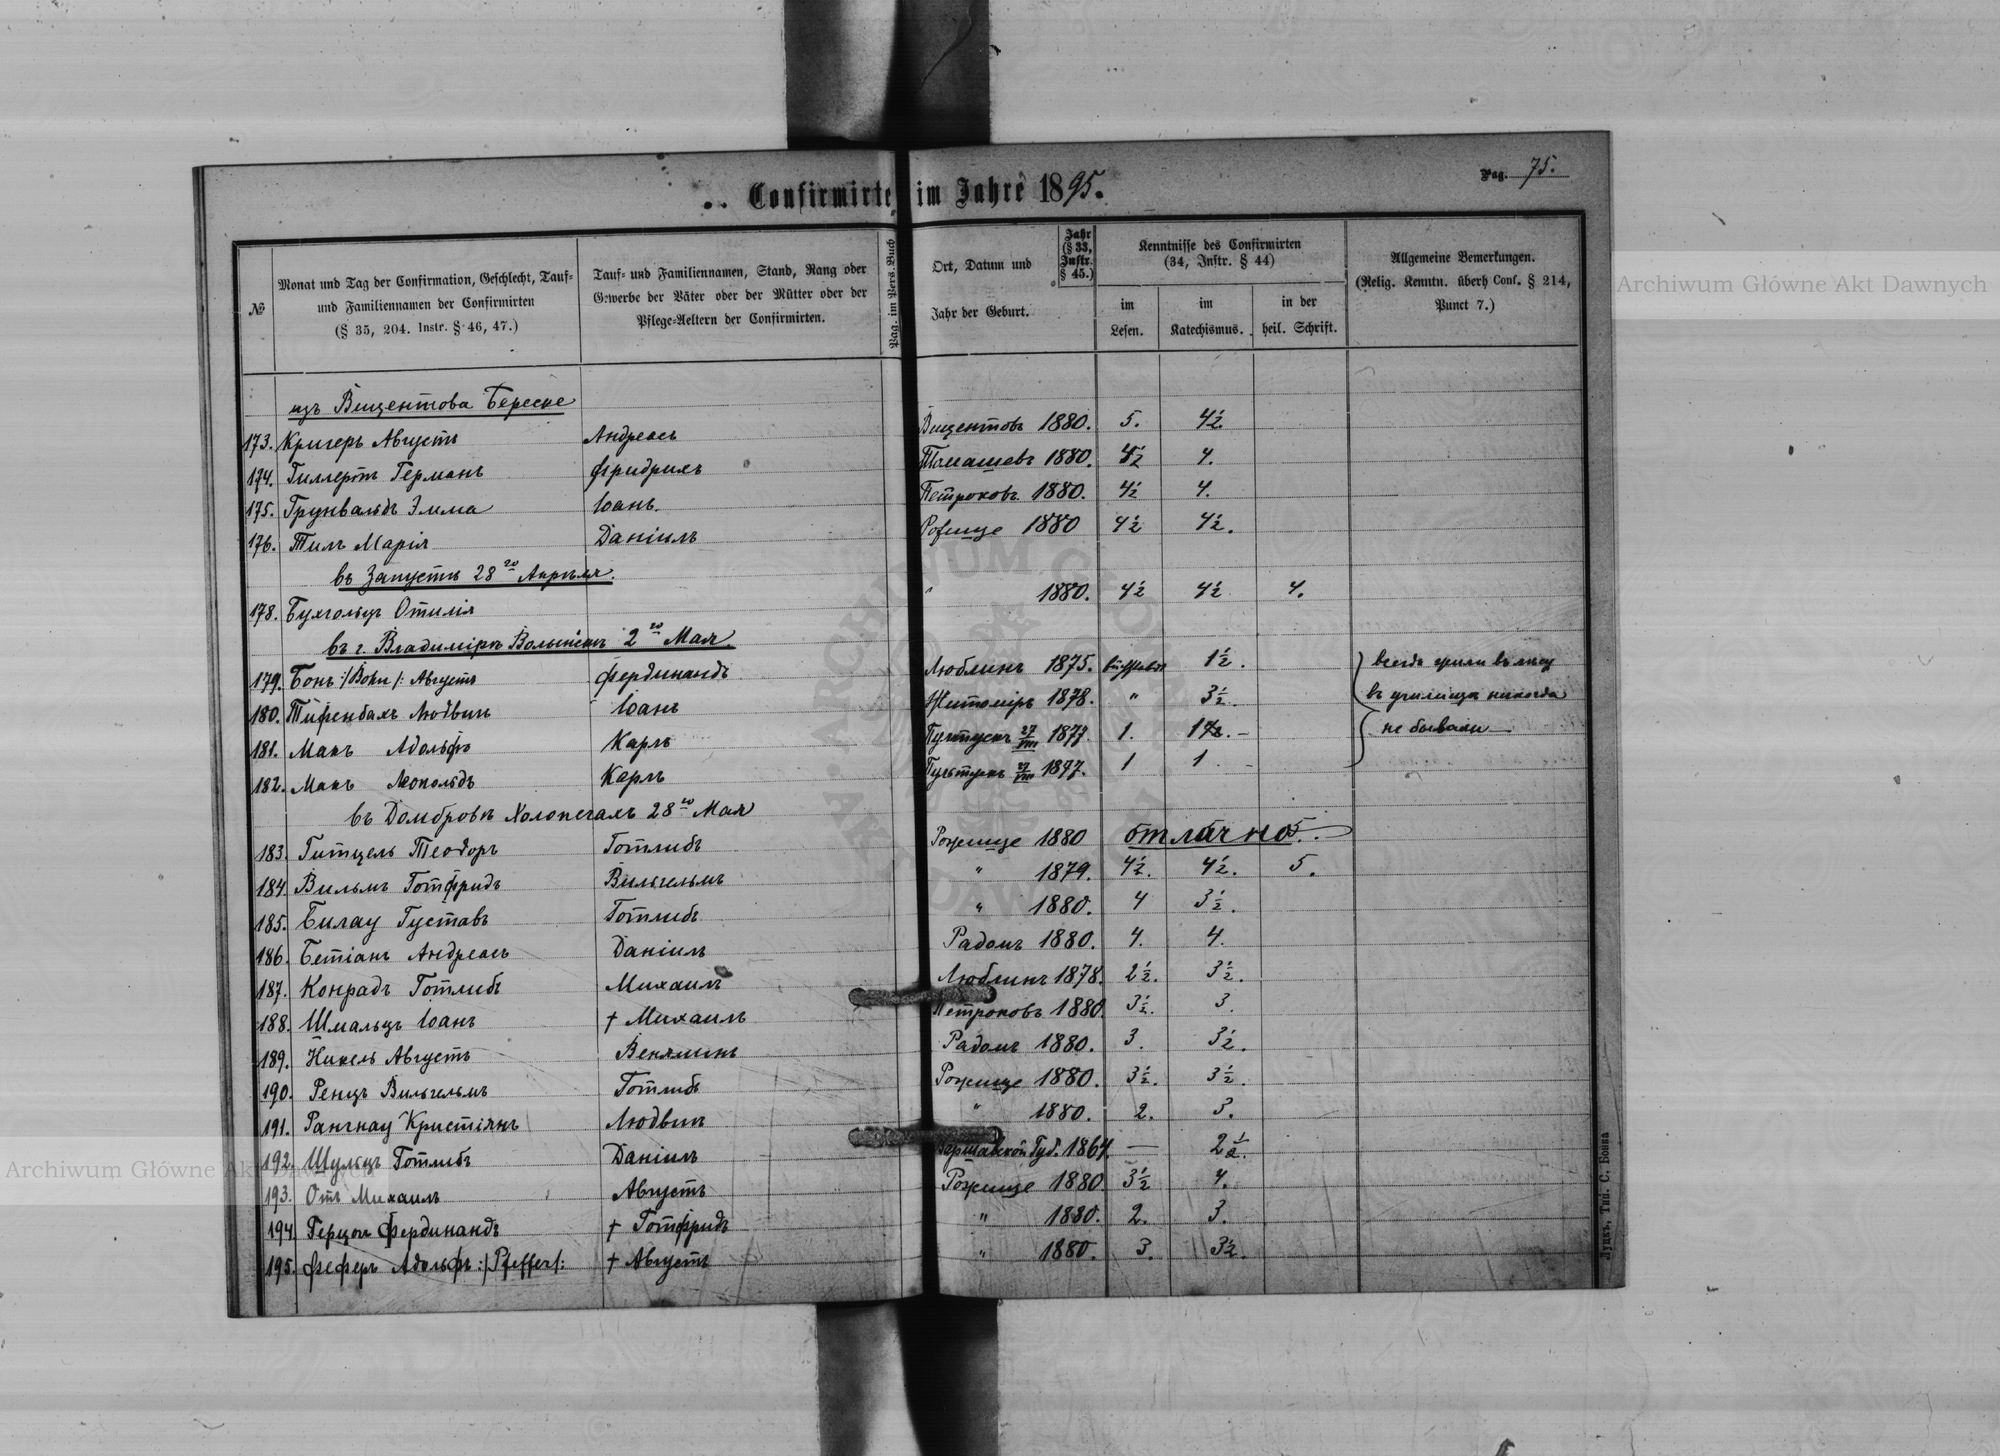 Confirmirte im Jahre 1895.
Pag. 75.
№
Monat und Tag der Confirmation, Geschlecht, Tauf-
und Familiennamen der Confirmirten
(§ 35, 204. Instr. § 46, 47.)
Tauf- und Familiennamen, Stand, Rang oder
Gewerbe der Väter oder der Mütter oder der
Pflege-Aeltern der Confirmirten.
Pag. im Pers. Buch
Ort, Datum und
Jahr der Geburt.
Jahr
(§ 33,
Instr.
§ 45.)
Kenntnisse des Confirmirten
(34, Instr. § 44)
im
Lesen.
im
Katechismus.
in der
heil. Schrift.
Allgemeine Bemerkungen.
(Relig. Kenntn. überh Conf. § 214,
Punct 7.)
изъ Вицентова Береске
173. Кригеръ Августъ Андреасъ Вицентовъ 1880. 5. 4½
174. Гиллертъ Германъ Фридрихъ Томашевъ 1880. 4½ 4.
175. Грунвальдъ Эмма Іоанъ. Петроковъ 1880. 4½ 4.
176. Тилъ Марія Даніилъ Рожище 1880 4½ 4½.
въ Запустъ 28го Апрѣля.
178. Бухгольцъ Отилія " 1880. 4½ 4½ 4.
въ г. Владимірѣ Волынскѣ 2го Мая.
179. Бонъ :/Bohn/: Августъ Фердинандъ Люблинъ 1875. 1½. всегда жили въ лѣсу
180. Тифенбахъ Людвик Іоанъ Житоміръ 1878. " 3½. въ училищѣ никогда
181. Макъ Адольфъ Карлъ Пултускъ 27/VIII 1877. 1. не бывали
182. Макъ Леопольдъ Карлъ Пултускъ 27/VIII 1877. 1 1.
въ Домбровѣ Холопечахъ 28го Мая
183. Гитцель Теодоръ Готлибъ Рожище 1880 отлично 5.
184. Вильмъ Готфридъ Вильгельмъ " 1879. 4½. 4½. 5.
185. Билау Густавъ Готлибъ " 1880. 4 3½.
186. Бетіанъ Андреасъ Даніилъ Радомъ 1880. 4. 4.
187. Конрадъ Готлибъ Михаилъ Люблинъ 1878. 2½. 3½.
188. Шмальцъ Іоанъ † Михаилъ Петроковъ 1880. 3½. 3.
189. Никель Августъ Веняминъ Радомъ 1880. 3. 3½.
190. Ренцъ Вильгельмъ Готлибъ Рожище 1880. 3½. 3½.
191. Рангнау Кристіянъ Людвик " 1880. 2. 3.
192. Шульцъ Готлибъ Даніилъ Варшавской Губ. 1864. — 2½.
193. Отъ Михаилъ Августъ Рожище 1880 3½ 4.
194 Герцог Фердинандъ † Готфридъ " 1880. 2. 3.
195. Феферъ Адольфъ :/Pfeffer/: † Августъ " 1880. 3. 3½.
Луцкъ, Тип. С. Бонка
Archiwum Główne Akt Dawnych
Archiwum Główne Akt Dawnych